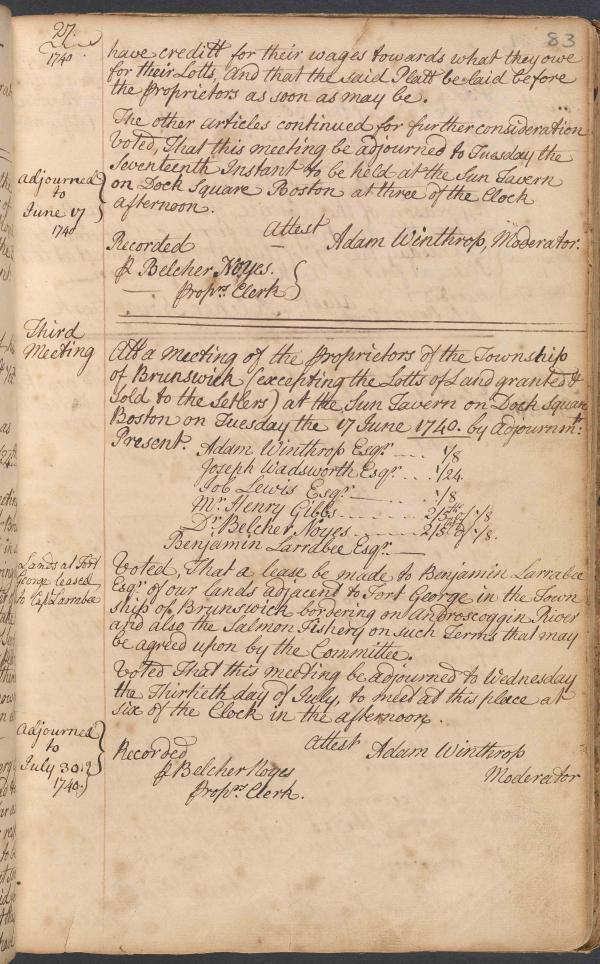 27.
1740
83
have creditt for their wages towards what they owe
for their Lotts, And that the said Platt be laid before
the Proprietors as soon as may be.
The other articles continued for further consideration
Voted, That this meeting be adjourned to Tuesday the
Seventeenth Instant to be held at the Sun Tavern
on Dock Square Boston at three of the Clock
afternoon.
adjourned
to
June 17
1740
attest
Recorded Adam Winthrop, Moderator.
⅌ Belcher Noyes.
Proprs Clerk
Third
Meeting
Att a Meeting of the Proprietors of the Township
of Brunswick (excepting the Lotts of Land granted &
Sold to the Setlers) at the Sun Tavern on Dock Square
Boston on Tuesday the 17 June 1740. by Adjournmt:
Present. Adam Winthrop Esqr. 1/8
Joseph Wadsworth Esqr. 1/24.
Job Lewis Esqr. 1/8
Mr. Henry Gibbs 2/5ths of 1/8
Dr. Belcher Noyes 2/5ths of 1/8.
Benjamin Larrabee Esqr.
Lands at Fort
George leased
to Capt Larrabee
Voted, That a lease be made to Benjamin Larrabee
Esqr. of our lands adjacent to Fort George in the Town
ship of Brunswick bordering on Androscoggin River
and also the Salmon Fishery on such Terms that may
be agreed upon by the Committee.
Voted That this meeting be adjourned to Wednesday
the Thirtieth day of July, to meet at this place at
six of the Clock in the afternoon.
Adjourned
to
July 30.
1740.
attest Adam Winthrop
Recorded Moderator
⅌ Belcher Noyes
Proprs Clerk.